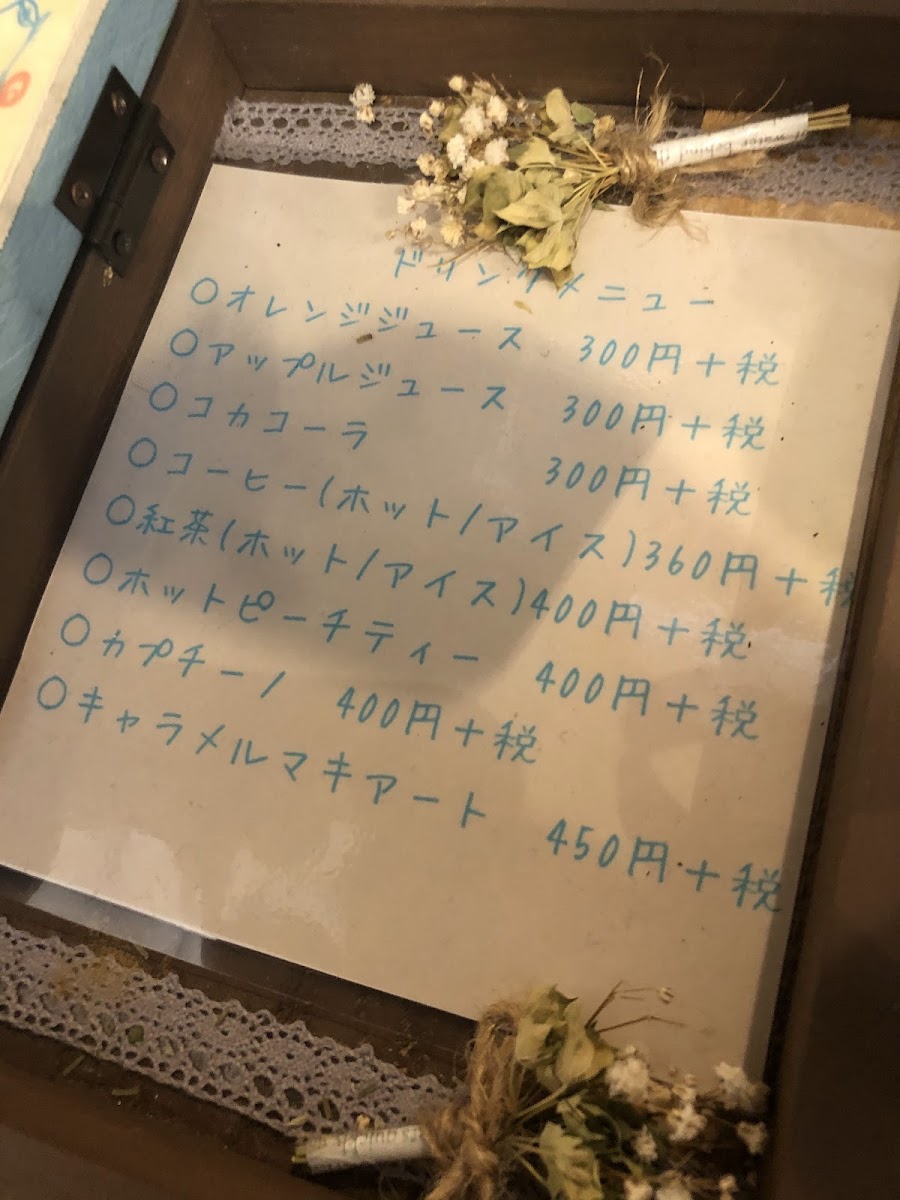 ドリンクメニュー
○オレンジジュース 300円+税
○アップルジュース 300円+税
○コカコーラ 300円+税
○コーヒー(ホット/アイス)360円+税
○紅茶(ホット/アイス)400円+税
○ホットピーチティー 400円+税
○カプチーノ 400円+税
○キャラメルマキアート 450円+税